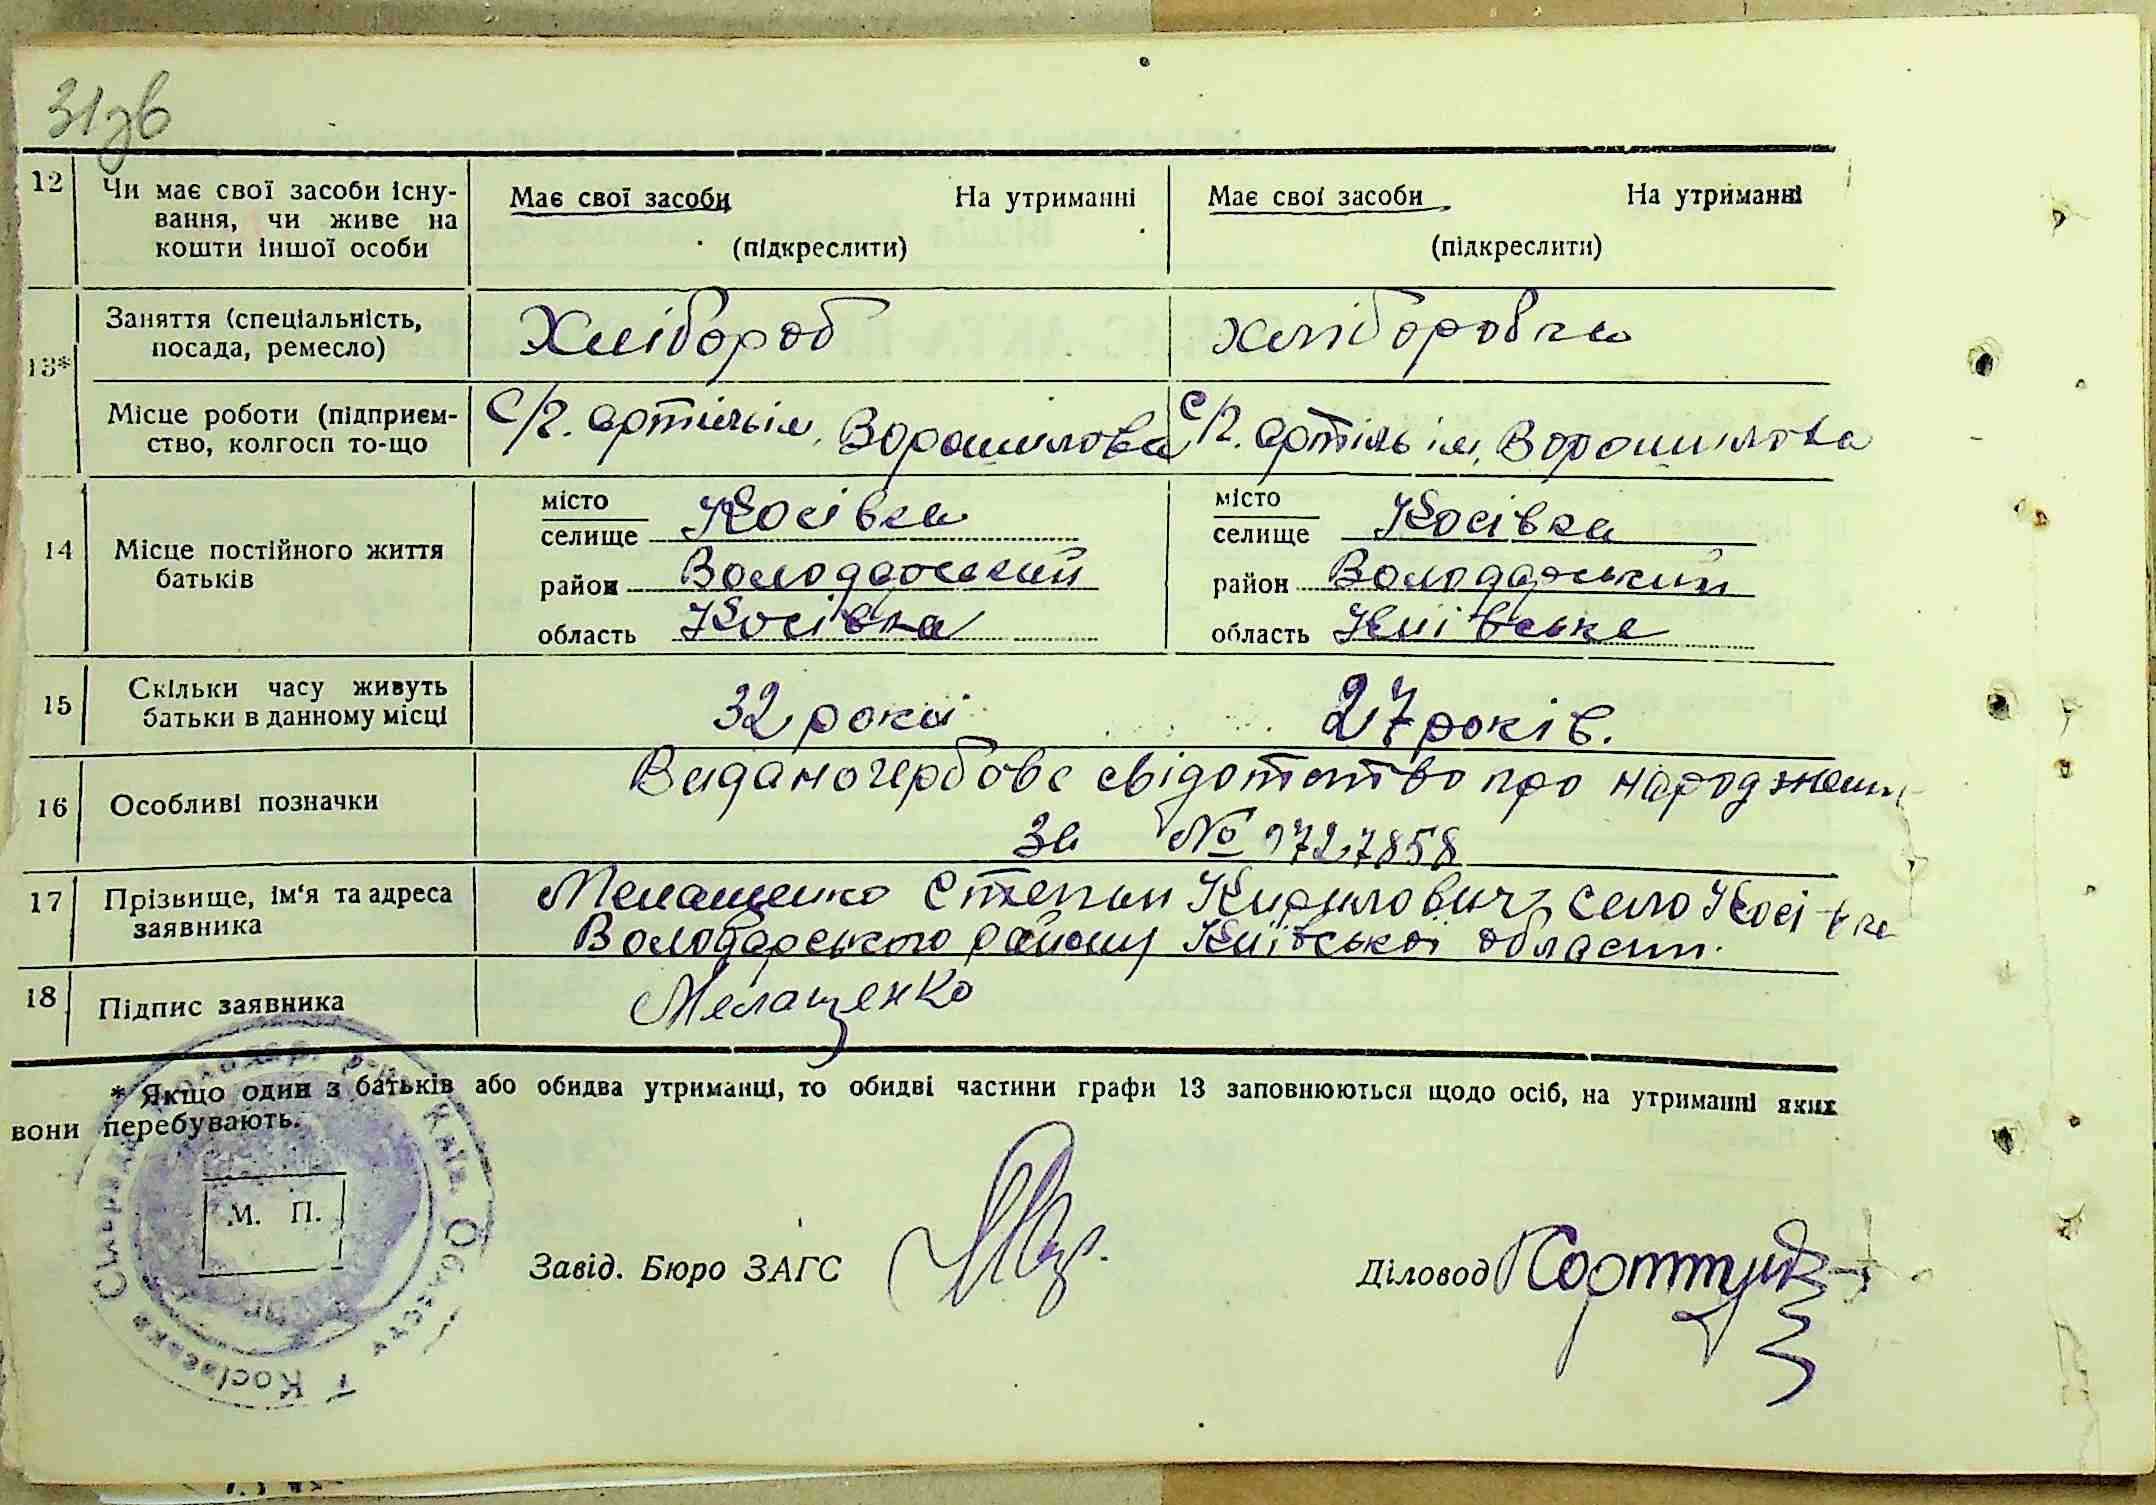 31зв
12 Чи має свої засоби існу-
вання, чи живе на
кошти іншої особи
Має свої засоби На утриманні
(підкреслити)
Має свої засоби На утриманні
(підкреслити)
13*
Заняття (спеціальність,
посада, ремесло)
Хлібороб
хліборобка
Місце роботи (підприєм-
ство, колгосп то-що
С/г. артіль ім. Ворошилова
С/г. артіль ім. Ворошилова
14 Місце постійного життя
батьків
місто
селище Косівка
район Володарський
область Косівка
місто
селище Косівка
район Володарський
область Київська
15 Скільки часу живуть
батьки в данному місці
32 роки
27 років.
16 Особливі позначки
Видано гербове свідотство про народжен
за № 1727858
17 Прізвище, ім'я та адреса
заявника
Мелащенко Степан Кирилович село Косівка
Володарського району Київської области.
18 Підпис заявника
Мелащенко
* Якщо один з батьків або обидва утриманці, то обидві частини графи 13 заповнюються щодо осіб, на утриманні яких
вони перебувають.
М. П.
Косівська Сільрада Володар. р-ну Київ. Области
Завід. Бюро ЗАГС
Діловод